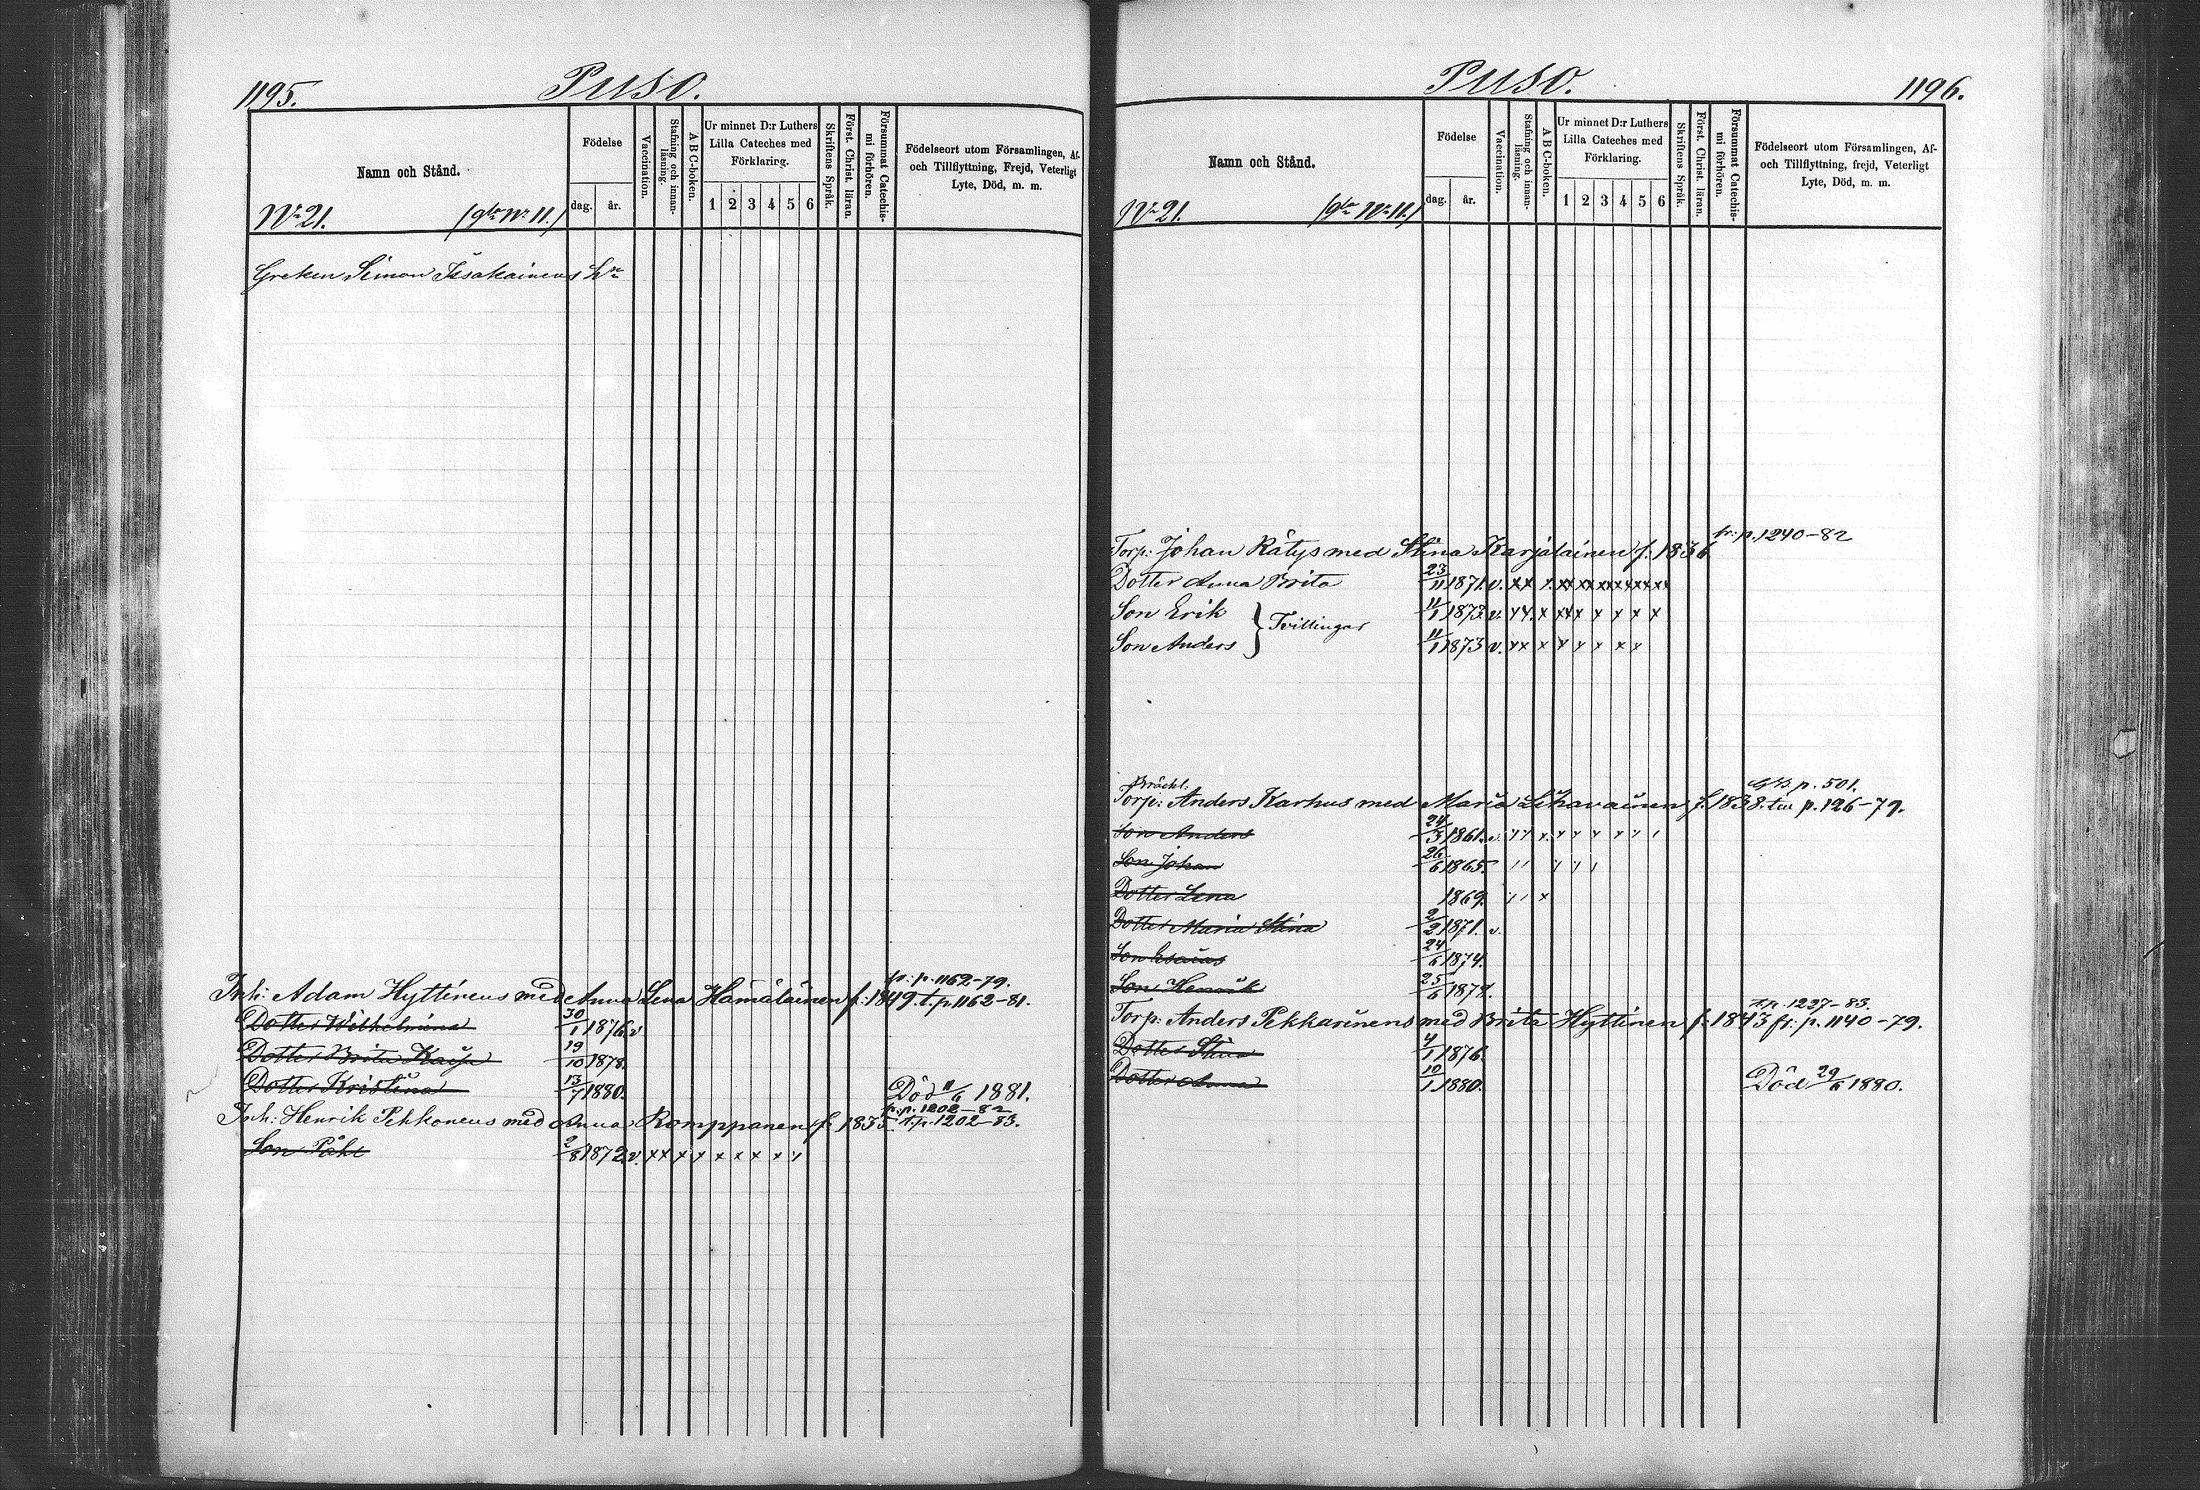 1195.
Puso.
Namn och Stånd.
Födelse
dag. år.
Vaccination.
Stafning och innan-
läsning.
A B C-boken.
Ur minnet D:r Luthers
Lilla Cateches med
Förklaring.
1 2 3 4 5 6
Skriftens Språk.
Först. Christ. läran.
Försummat Catechis-
mi förhören.
Födelseort utom Församlingen, Af-
och Tillflyttning, Frejd, Veterligt
Lyte, Död, m. m.
No 21. (gla No 11.)
Greken Simon
fr: p. 1162-79.
Inh: Adam Hyttinens med Anna Lena Hämäläinen f: 1849. t. p 1162-81.
Dotter Wilhelmina 30/1 1876. v
Dotter Brita Kaisa 19/10 1878.
Dotter Kristina 13/7 1880. Död 11/6 1881.
fr: p. 1202-82
Inh: Henrik Pekkonens med Anna Romppanen f: 1835. t. p. 1202-83.
Son Påhl 2/8 1872. v. x x x x x x x x x
Puso.
1196.
Namn och Stånd.
Födelse
dag. år.
Vaccination.
Stafning och innan-
läsning.
A B C-boken.
Ur minnet D:r Luthers
Lilla Cateches med
Förklaring.
1 2 3 4 5 6
Skriftens Språk.
Först. Christ. läran.
Försummat Catechis-
mi förhören.
Födelseort utom Församlingen, Af-
och Tillflyttning, frejd, Veterligt
Lyte, Död, m. m.
No 21. (gla No 11.)
fr: p. 1240-82
Torp: Johan Rätys med Stina Karjalainen f. 1836
Dotter Anna Brita 23/11 1871. v. xx x. xx xx xx xx xx xx
Son Erik 11/1 1873. v. xx. x xxx x x x x
Tvillingar
Son Anders 11/1 1873 v. xx x x x x x x
Bräckl. p. 501.
Torp: Anders Karhus med Maria Lihavainen f. 1838. p. 126-79.
Son Anders 24/3 1861.
Son Johan 26/6 1865.
Dotter Lena 1869.
Dotter Maria Stina 2/2 1871. v.
Son Esaias 24/6 1874.
Son Henrik 25/6 1878.
t. p. 1227-83.
Torp: Anders Pekkarinens med Brita Hyttinen f: 1843 fr: p. 1140-79.
Dotter Stina 4/1 1876.
Dotter Anna 10/1 1880. Död 29/6 1880.